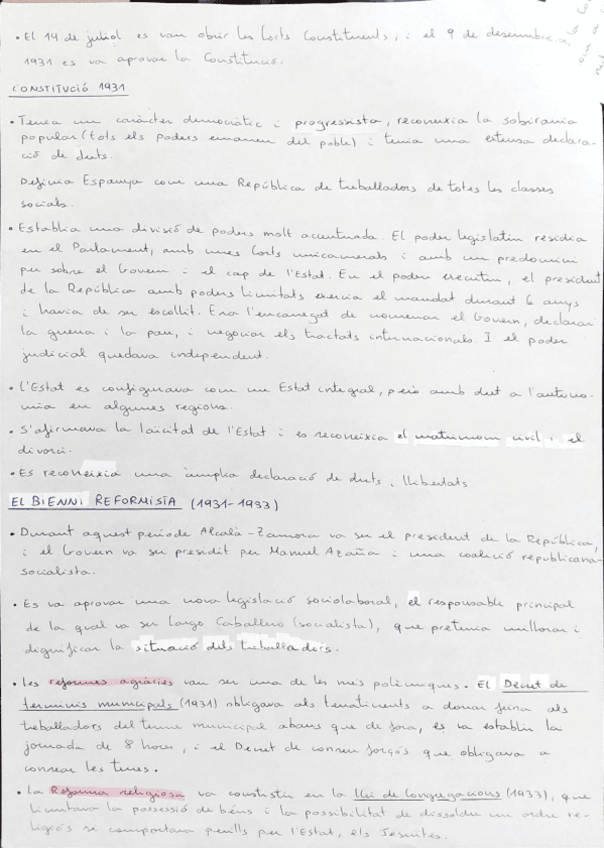 • El 14 de juliol es van obrir les Corts Constituents, i el 9 de desembre d'
1931 es va aprovar la Constitució.
CONSTITUCIÓ 1931
• Tenia un caràcter democràtic i progressista, reconeixia la sobirania
popular (tots els poders emanen del poble) i tenia una extensa declara-
ció de drets.
Definia Espanya com una República de treballadors de totes les classes
socials.
• Establia una divisió de poders molt accentuada. El poder legislatiu residia
en el Parlament, amb unes Corts unicamerals i amb un predomini
per sobre el Govern i el cap de l'Estat. En el poder executiu, el president
de la República amb poders limitats exercia el mandat durant 6 anys
i havia de ser escollit. Era l'encarregat de nomenar el Govern, declarar
la guerra i la pau, i negociar els tractats internacionals. I el poder
judicial quedava independent.
• L'Estat es configurava com un Estat integral, però amb dret a l'autono-
mia en algunes regions.
• S'afirmava la laïcitat de l'Estat i es reconeixia el matrimoni civil i el
divorci.
• Es reconeixia una àmplia declaració de drets i llibertats
EL BIENNI REFORMISTA (1931-1933)
• Durant aquest període Alcalà-Zamora va ser el president de la República,
i el Govern va ser presidit per Manuel Azaña i una coalició republicana-
socialista.
• Es va aprovar una nova legislació sociolaboral, el responsable principal
de la qual va ser Largo Caballero (socialista), que pretenia millorar i
dignificar la situació dels treballadors.
• Les reformes agràries van ser una de les més polèmiques. El Decret de
termes municipals (1931) obligava als terratinents a donar feina als
treballadors del terme municipal abans que de fora, es va establir la
jornada de 8 hores, i el Decret de conreu forçós que obligava a
conrear les terres.
• La Reforma religiosa va consistir en la Llei de Congregacions (1933), que
limitava la possessió de béns i la possibilitat de dissoldre un ordre re-
ligiós si comportava perills per l'Estat, els Jesuïtes.